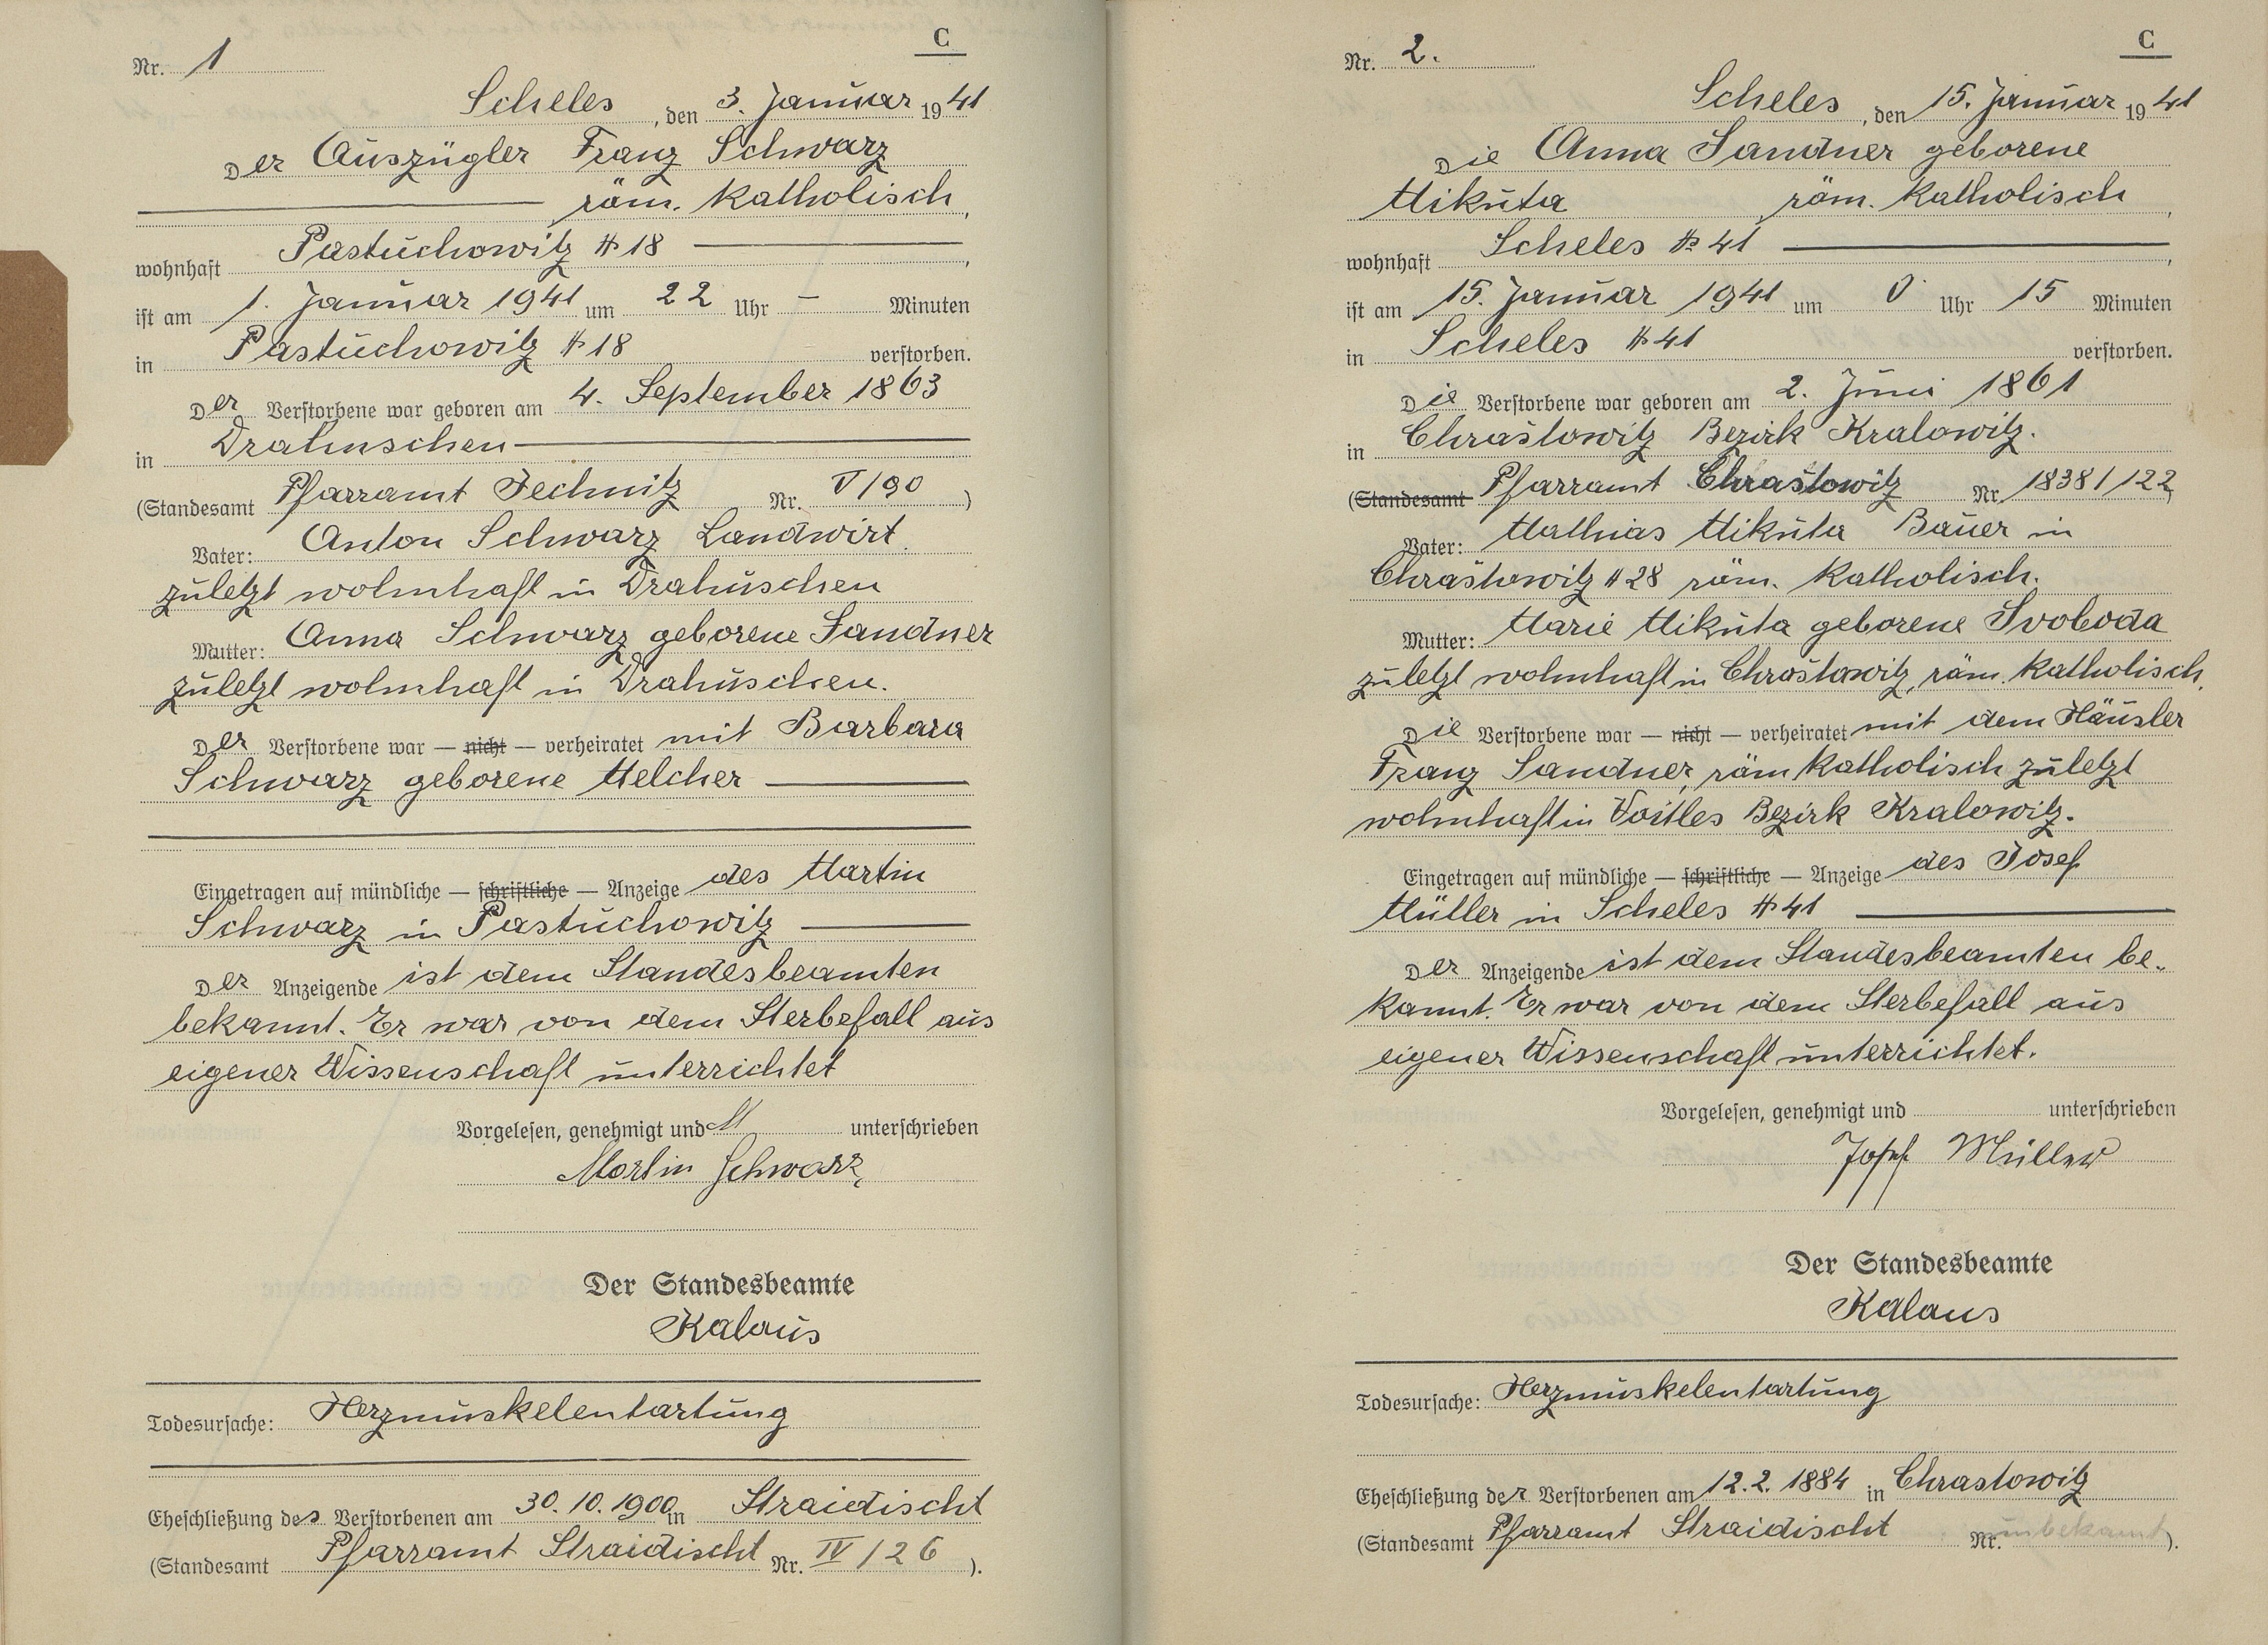 C
Nr. 1
Scheles, den 3. Januar 1941
Der Auszügler Franz Schwarz
röm. katholisch,
wohnhaft Pastuchowitz # 18,
ist am 1. Januar 1941 um 22 Uhr – Minuten
in Pastuchowitz # 18 verstorben.
Der Verstorbene war geboren am 4. September 1863
in Drahuschen
(Standesamt Pfarramt Jechnitz Nr. V/90)
Vater: Anton Schwarz Landwirt
zuletzt wohnhaft in Drahuschen
Mutter: Anna Schwarz geborene Sandner
zuletzt wohnhaft in Drahuschen.
Der Verstorbene war — nicht — verheiratet mit Barbara
Schwarz geborene Melcher
Eingetragen auf mündliche — schriftliche — Anzeige des Martin
Schwarz in Pastuchowitz
Der Anzeigende ist dem Standesbeamten
bekannt. Er war von dem Sterbefall aus
eigener Wissenschaft unterrichtet
Vorgelesen, genehmigt und unterschrieben
Martin Schwarz
Der Standesbeamte
Kalaus
Todesursache: Herzmuskelentartung
Eheschließung des Verstorbenen am 30.10.1900 in Straidischt
(Standesamt Pfarramt Straidischt Nr. IV/26).
C
Nr. 2.
Scheles, den 15. Januar 1941
Die Anna Sandner geborene
Mikuta röm. katholisch,
wohnhaft Scheles # 41,
ist am 15. Januar 1941 um 0 Uhr 15 Minuten
in Scheles # 41 verstorben.
Die Verstorbene war geboren am 2. Juni 1861
in Chraštowitz Bezirk Kralowitz.
(Standesamt Pfarramt Chraštowitz Nr. 1838/122)
Vater: Mathias Mikuta Bauer in
Chraštowitz # 28 röm. katholisch.
Mutter: Marie Mikuta geborene Svoboda
zuletzt wohnhaft in Chraštowitz, röm. katholisch.
Die Verstorbene war — nicht — verheiratet mit dem Häusler
Franz Sandner, röm katholisch zuletzt
wohnhaft in Voitles Bezirk Kralowitz.
Eingetragen auf mündliche — schriftliche — Anzeige des Josef
Müller in Scheles # 41
Der Anzeigende ist dem Standesbeamten be-
kannt. Er war von dem Sterbefall aus
eigener Wissenschaft unterrichtet.
Vorgelesen, genehmigt und unterschrieben
Josef Müller
Der Standesbeamte
Kalaus
Todesursache: Herzmuskelentartung
Eheschließung der Verstorbenen am 12.2.1884 in Chrastowitz
(Standesamt Pfarramt Straidischt Nr. unbekannt).